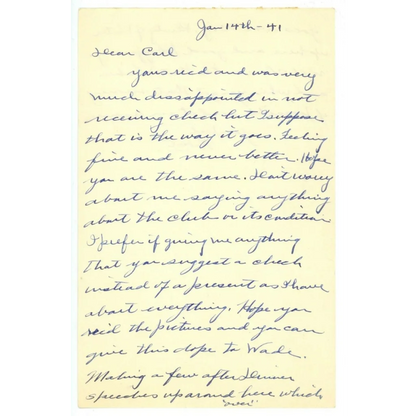 Jan 14th - 41
Dear Carl
yours rec'd and was very
much dissappointed in not
receiving check but I suppose
that is the way it goes. Feeling
fine and never better. Hope
you are the same. Don't worry
about me saying anything
about the club or its condition
I prefer if giving me anything
that you suggest a check
instead of a present as I have
about everything. Hope you
recd the pictures and you can
give this dope to Wade.
Making a few after dinner
speeches up around here which
over